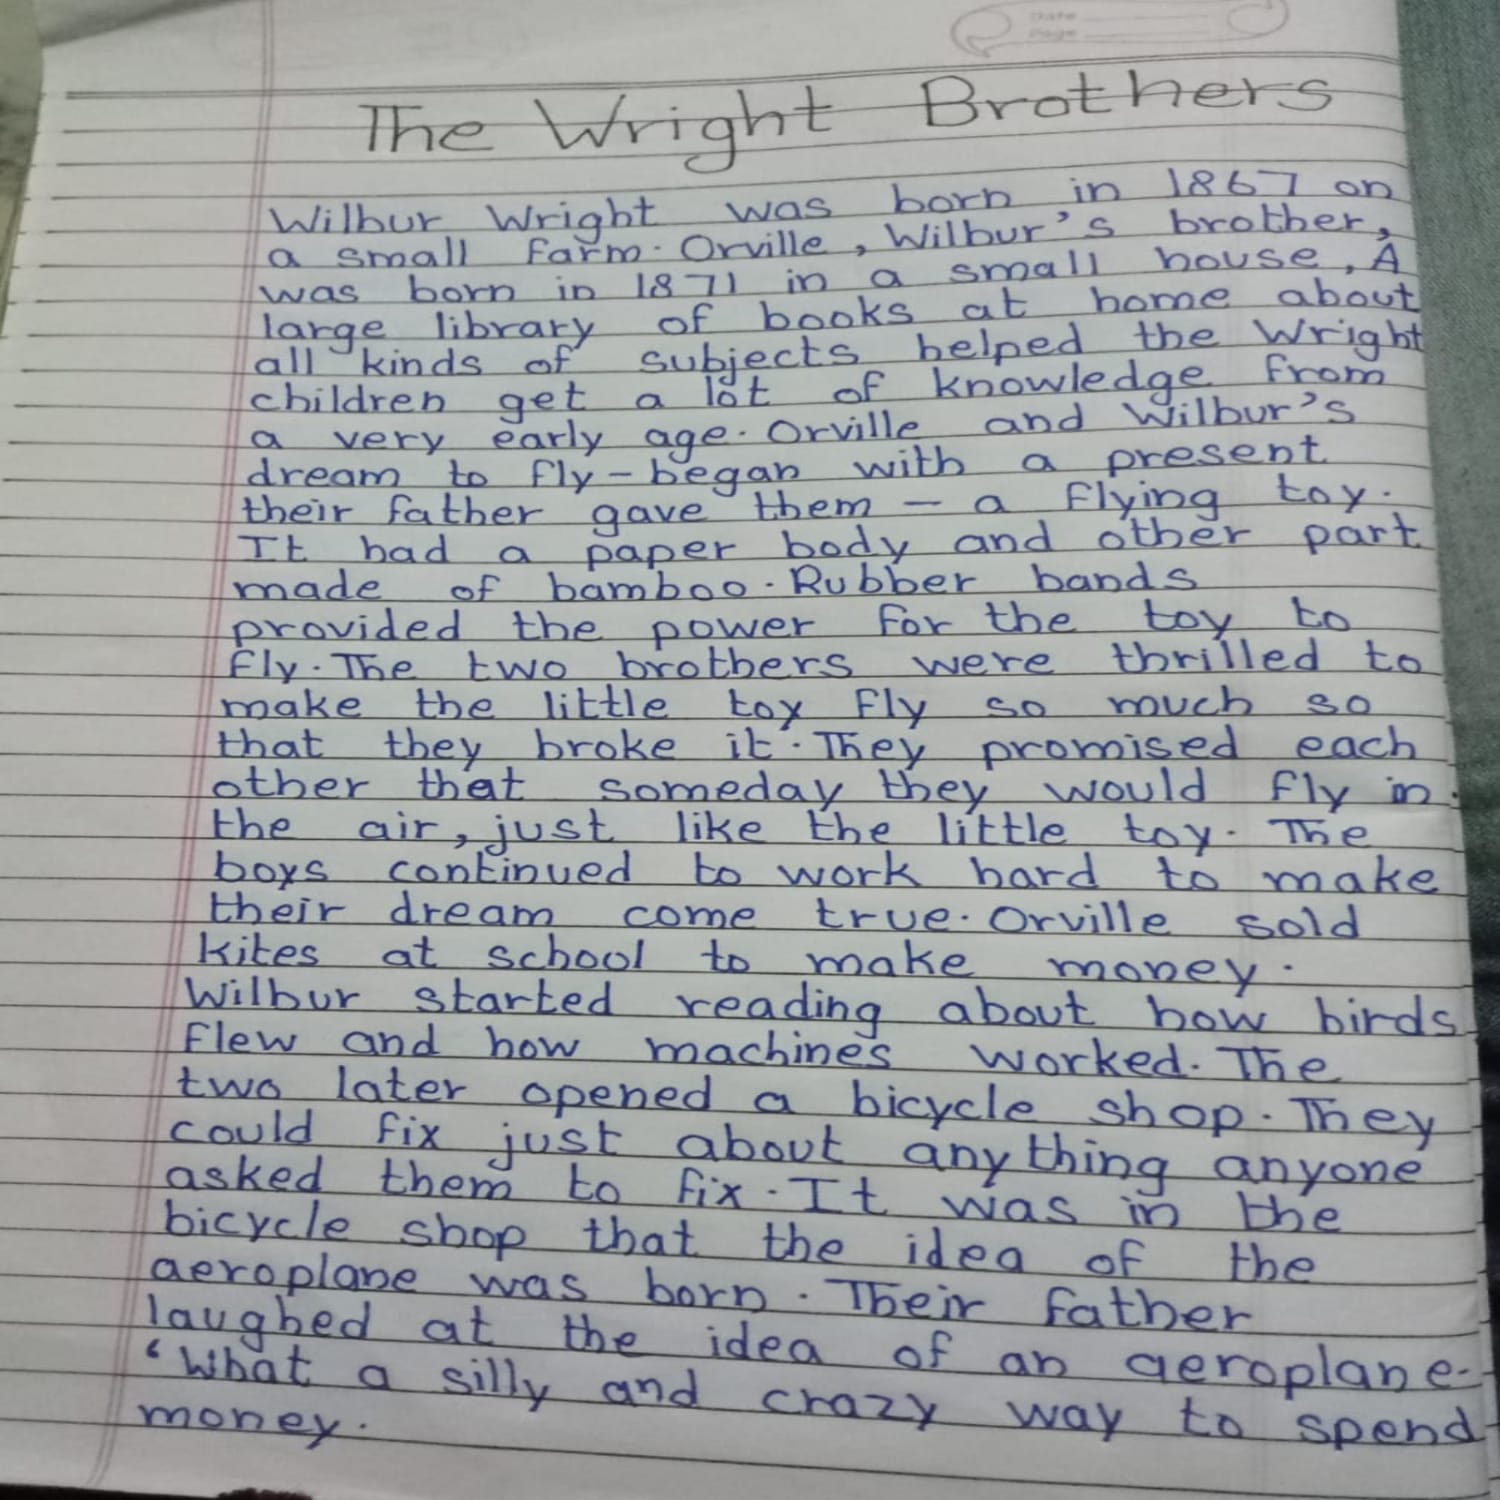 Date
Page
The Wright Brothers
Wilbur Wright was born in 1867 on
a small farm. Orville, Wilbur's brother,
was born in 1871 in a small house, A
large library of books at home about
all kinds of subjects helped the Wright
children get a lot of knowledge from
a very early age. Orville and Wilbur's
dream to fly - began with a present
their father gave them - a flying toy.
It had a paper body and other part
made of bamboo. Rubber bands
provided the power for the toy to
fly. The two brothers were thrilled to
make the little toy fly so much so
that they broke it. They promised each
other that someday they would fly in
the air, just like the little toy. The
boys continued to work hard to make
their dream come true. Orville sold
kites at school to make money.
Wilbur started reading about how birds
flew and how machines worked. The
two later opened a bicycle shop. They
could fix just about anything anyone
asked them to fix. It was in the
bicycle shop that the idea of the
aeroplane was born. Their father
laughed at the idea of an aeroplane.
‘What a silly and crazy way to spend
money.